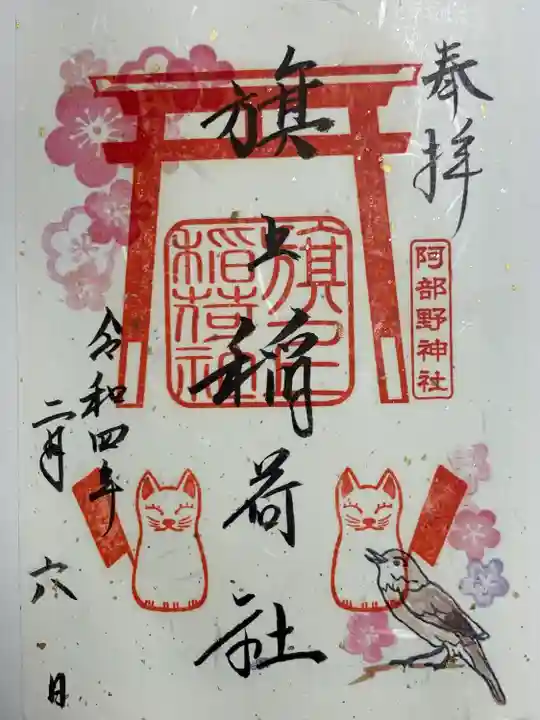 奉拝
阿部野神社
旗上稲荷社
旗上
稲荷社
令和四年
二月
六
日